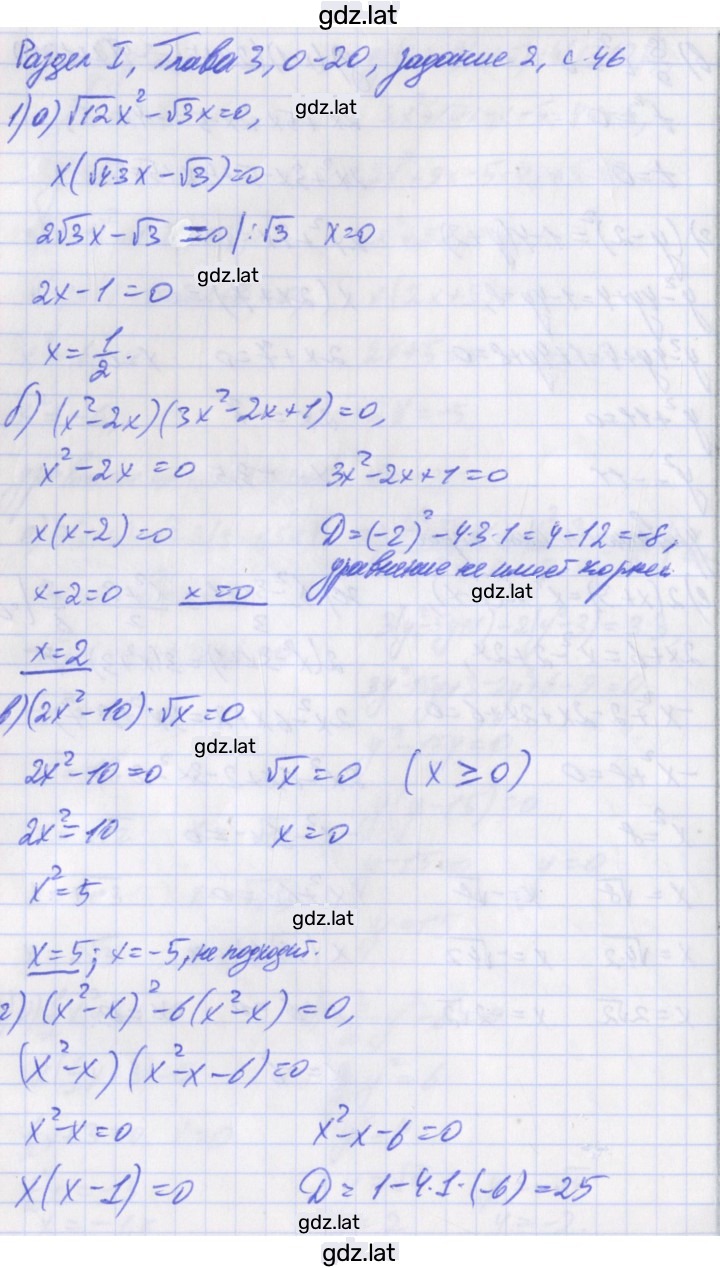 gdz.lat
Раздел I, Глава 3, 0-20, задание 2, с. 46
1) а) √12x² - √3x = 0,
gdz.lat
x(√4·3x - √3) = 0
2√3x - √3 = 0 | : √3 x = 0
gdz.lat
2x - 1 = 0
x = 1/2.
б) (x² - 2x)(3x² - 2x + 1) = 0,
x² - 2x = 0 3x² - 2x + 1 = 0
x(x - 2) = 0 D = (-2)² - 4·3·1 = 4 - 12 = -8,
уравнение не имеет корней
gdz.lat
x - 2 = 0 x = 0
x = 2
в) (2x² - 10)·√x = 0
gdz.lat
2x² - 10 = 0 √x = 0 (x ≥ 0)
2x² = 10 x = 0
x² = 5
gdz.lat
x = 5; x = -5, не подходит.
г) (x² - x)² - 6(x² - x) = 0,
(x² - x)(x² - x - 6) = 0
x² - x = 0 x² - x - 6 = 0
x(x - 1) = 0 D = 1 - 4·1·(-6) = 25
gdz.lat
gdz.lat